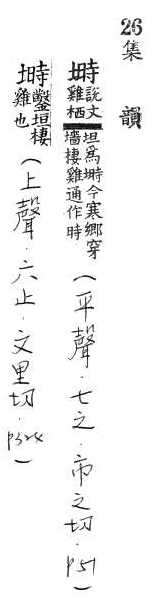 26集　韻
塒說文雞栖垣爲塒今寒鄉穿墻棲雞通作時（平聲．七之．市之切．P51）
塒鑿垣棲雞也（上聲．六止．文里切．P324）